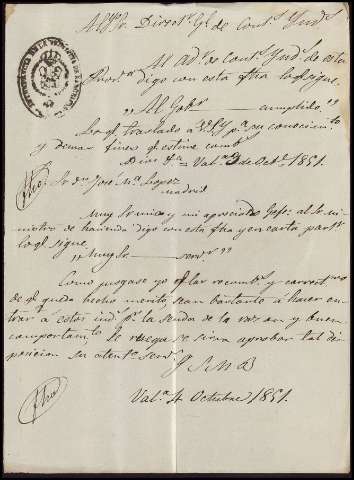 Al Yl. Sr. Direct.r Gl. de Cont.s Yndr.s
Al Ad.or de Cont.s Ynd.s de esta
digo con esta fha lo q.e sigue.
"Al Gob.r cumplido"
Lo q.e traslado á V.S.Y. p.a su conocim.to
y demas fines q.e estime comb.s
Dios &.a = Val.a 3 de Oct.e 1851.
Fho
Sr Dn José M.a Lopez
Madrid
Muy Sr mio y mi apreciado Gefe: al Sr mi-
nistro de hacienda digo con esta fha y en carta part.r
lo q.e sigue
"Muy Sr serv.r"
Como juzgase yo q.e las recomb.s y correct.vos
de q.e queda hecho merito, sean bastante á hacer en-
trar á estos ind.s p.r la senda de la razon y buen
comportam.to le ruega se sirva aprobar tal dis-
posicion su atento serv.r
Q S M B
Fho
Val.a 4 Octubre 1851.